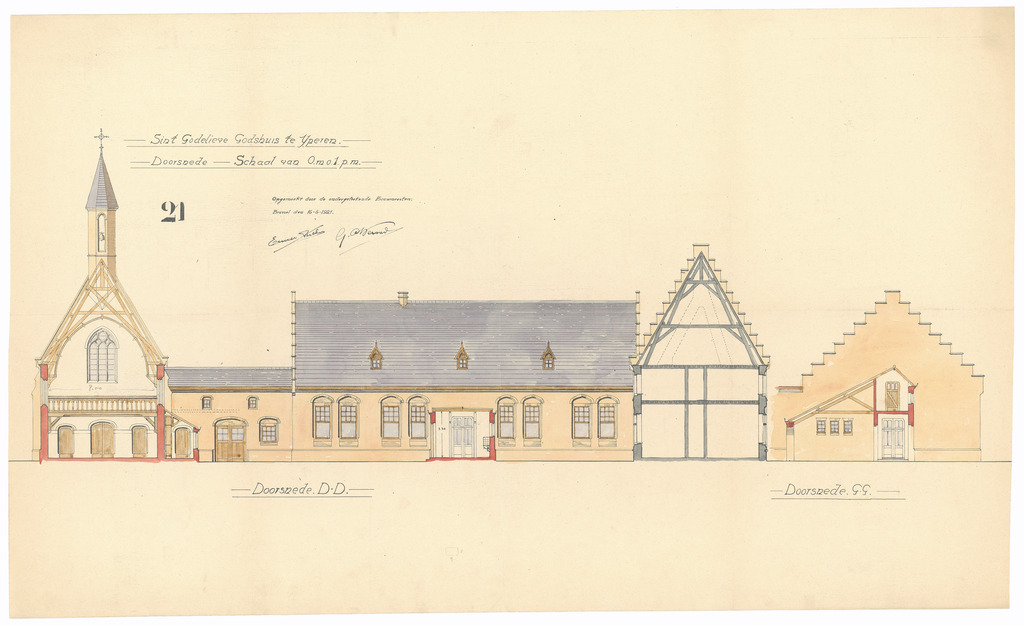 Sint Godelieve Godshuis te Yperen.
Doorsnede — Schaal van 0.m.01 p.m.
21
Opgemaakt door de ondergeteekende Bouwmeesters,
den 15-6-1921.
Doorsnede. D-D.
Doorsnede. GG.